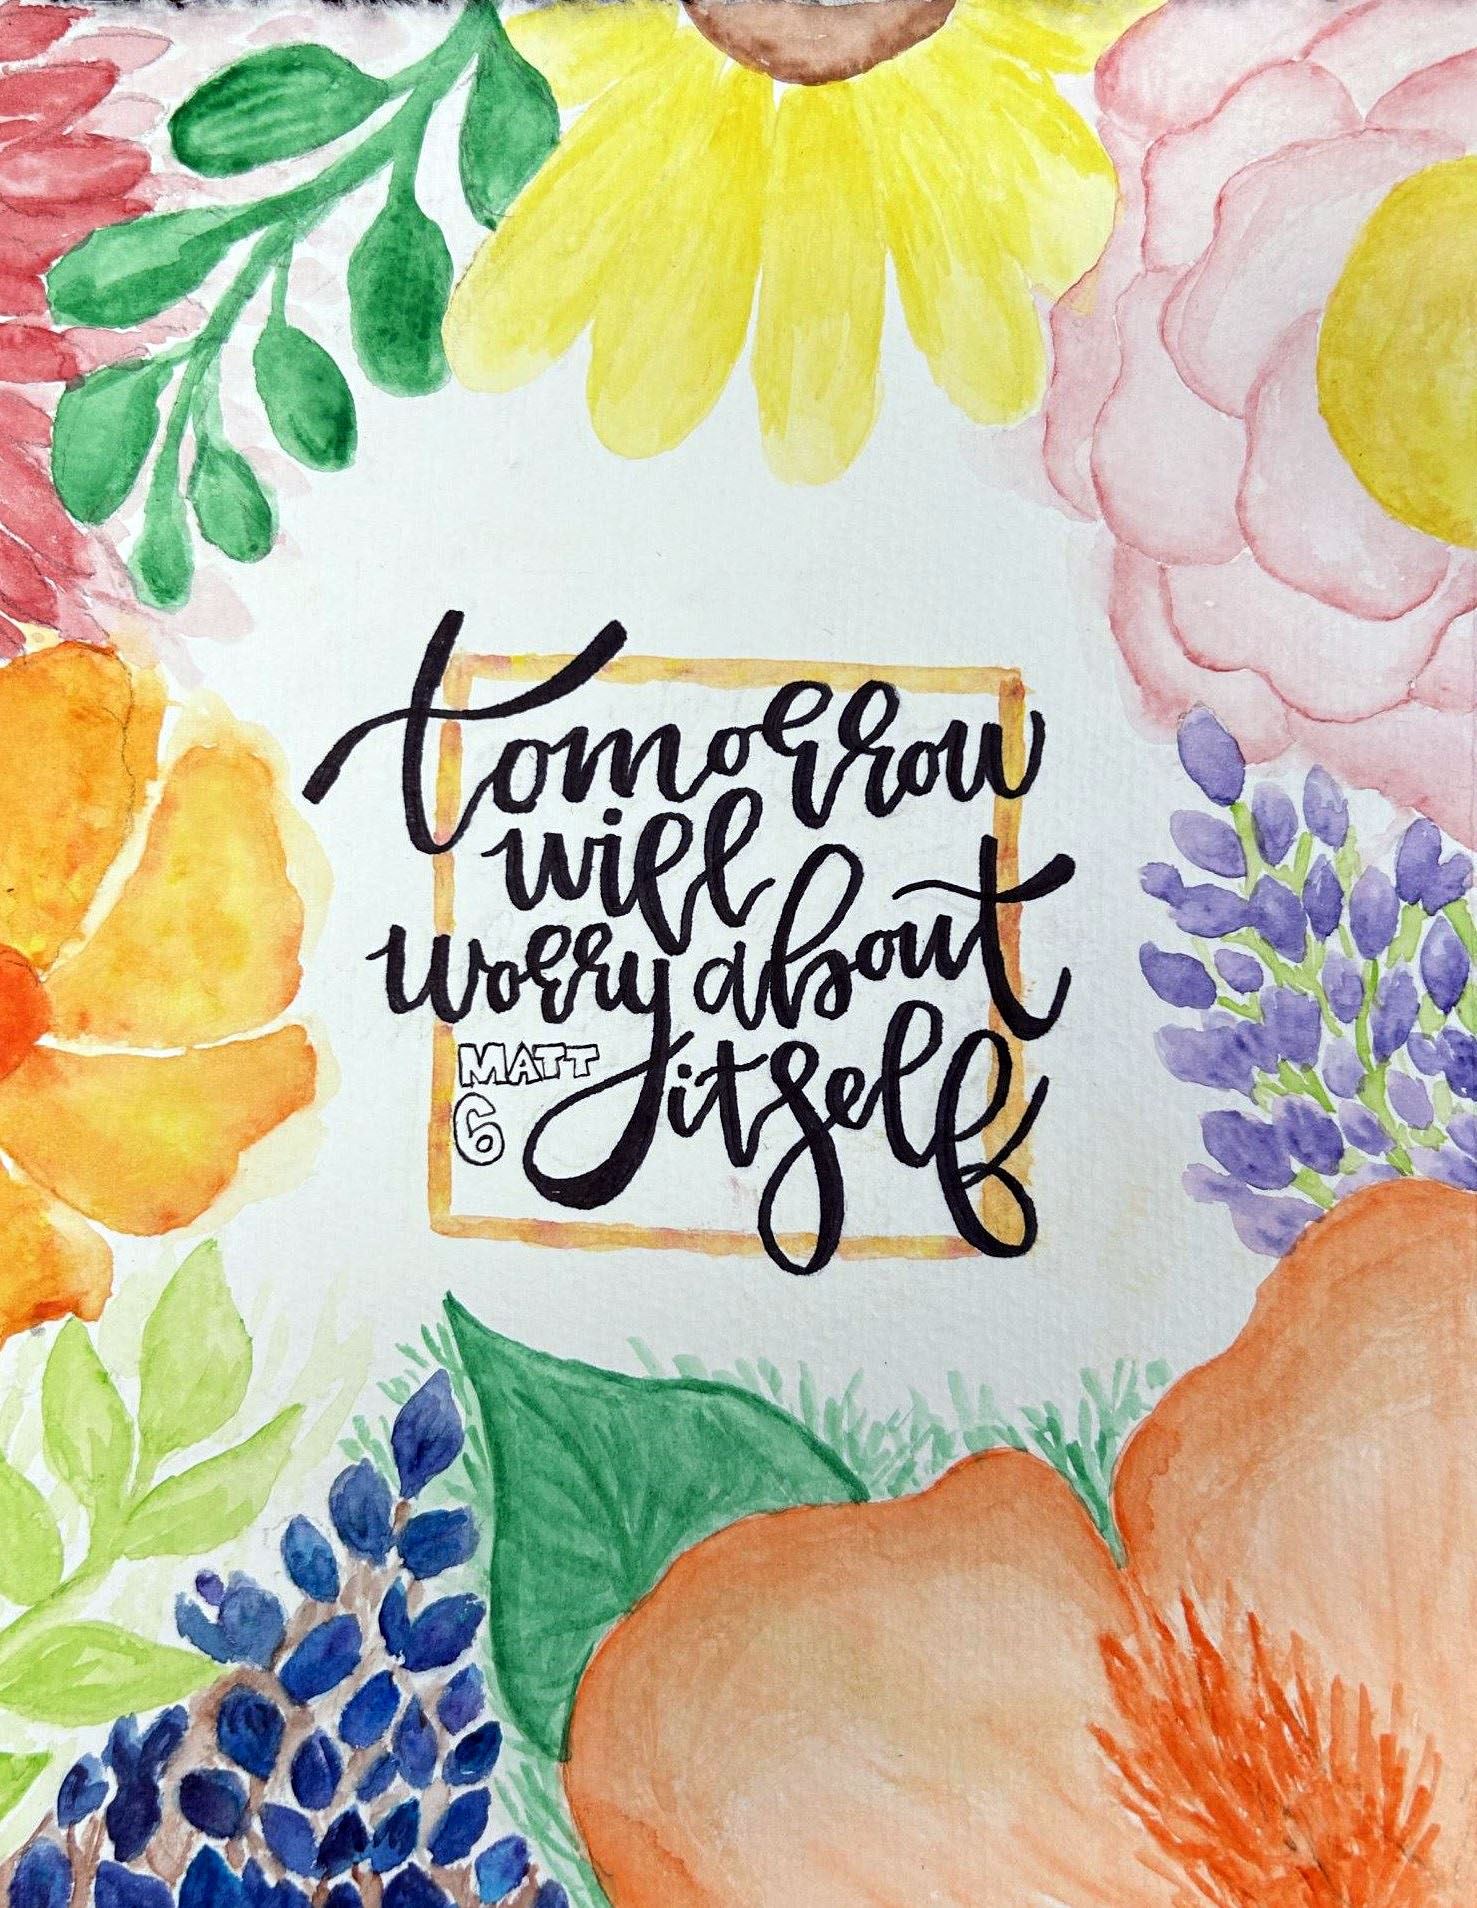 tomorrow
will
worry about
MATT itself
6